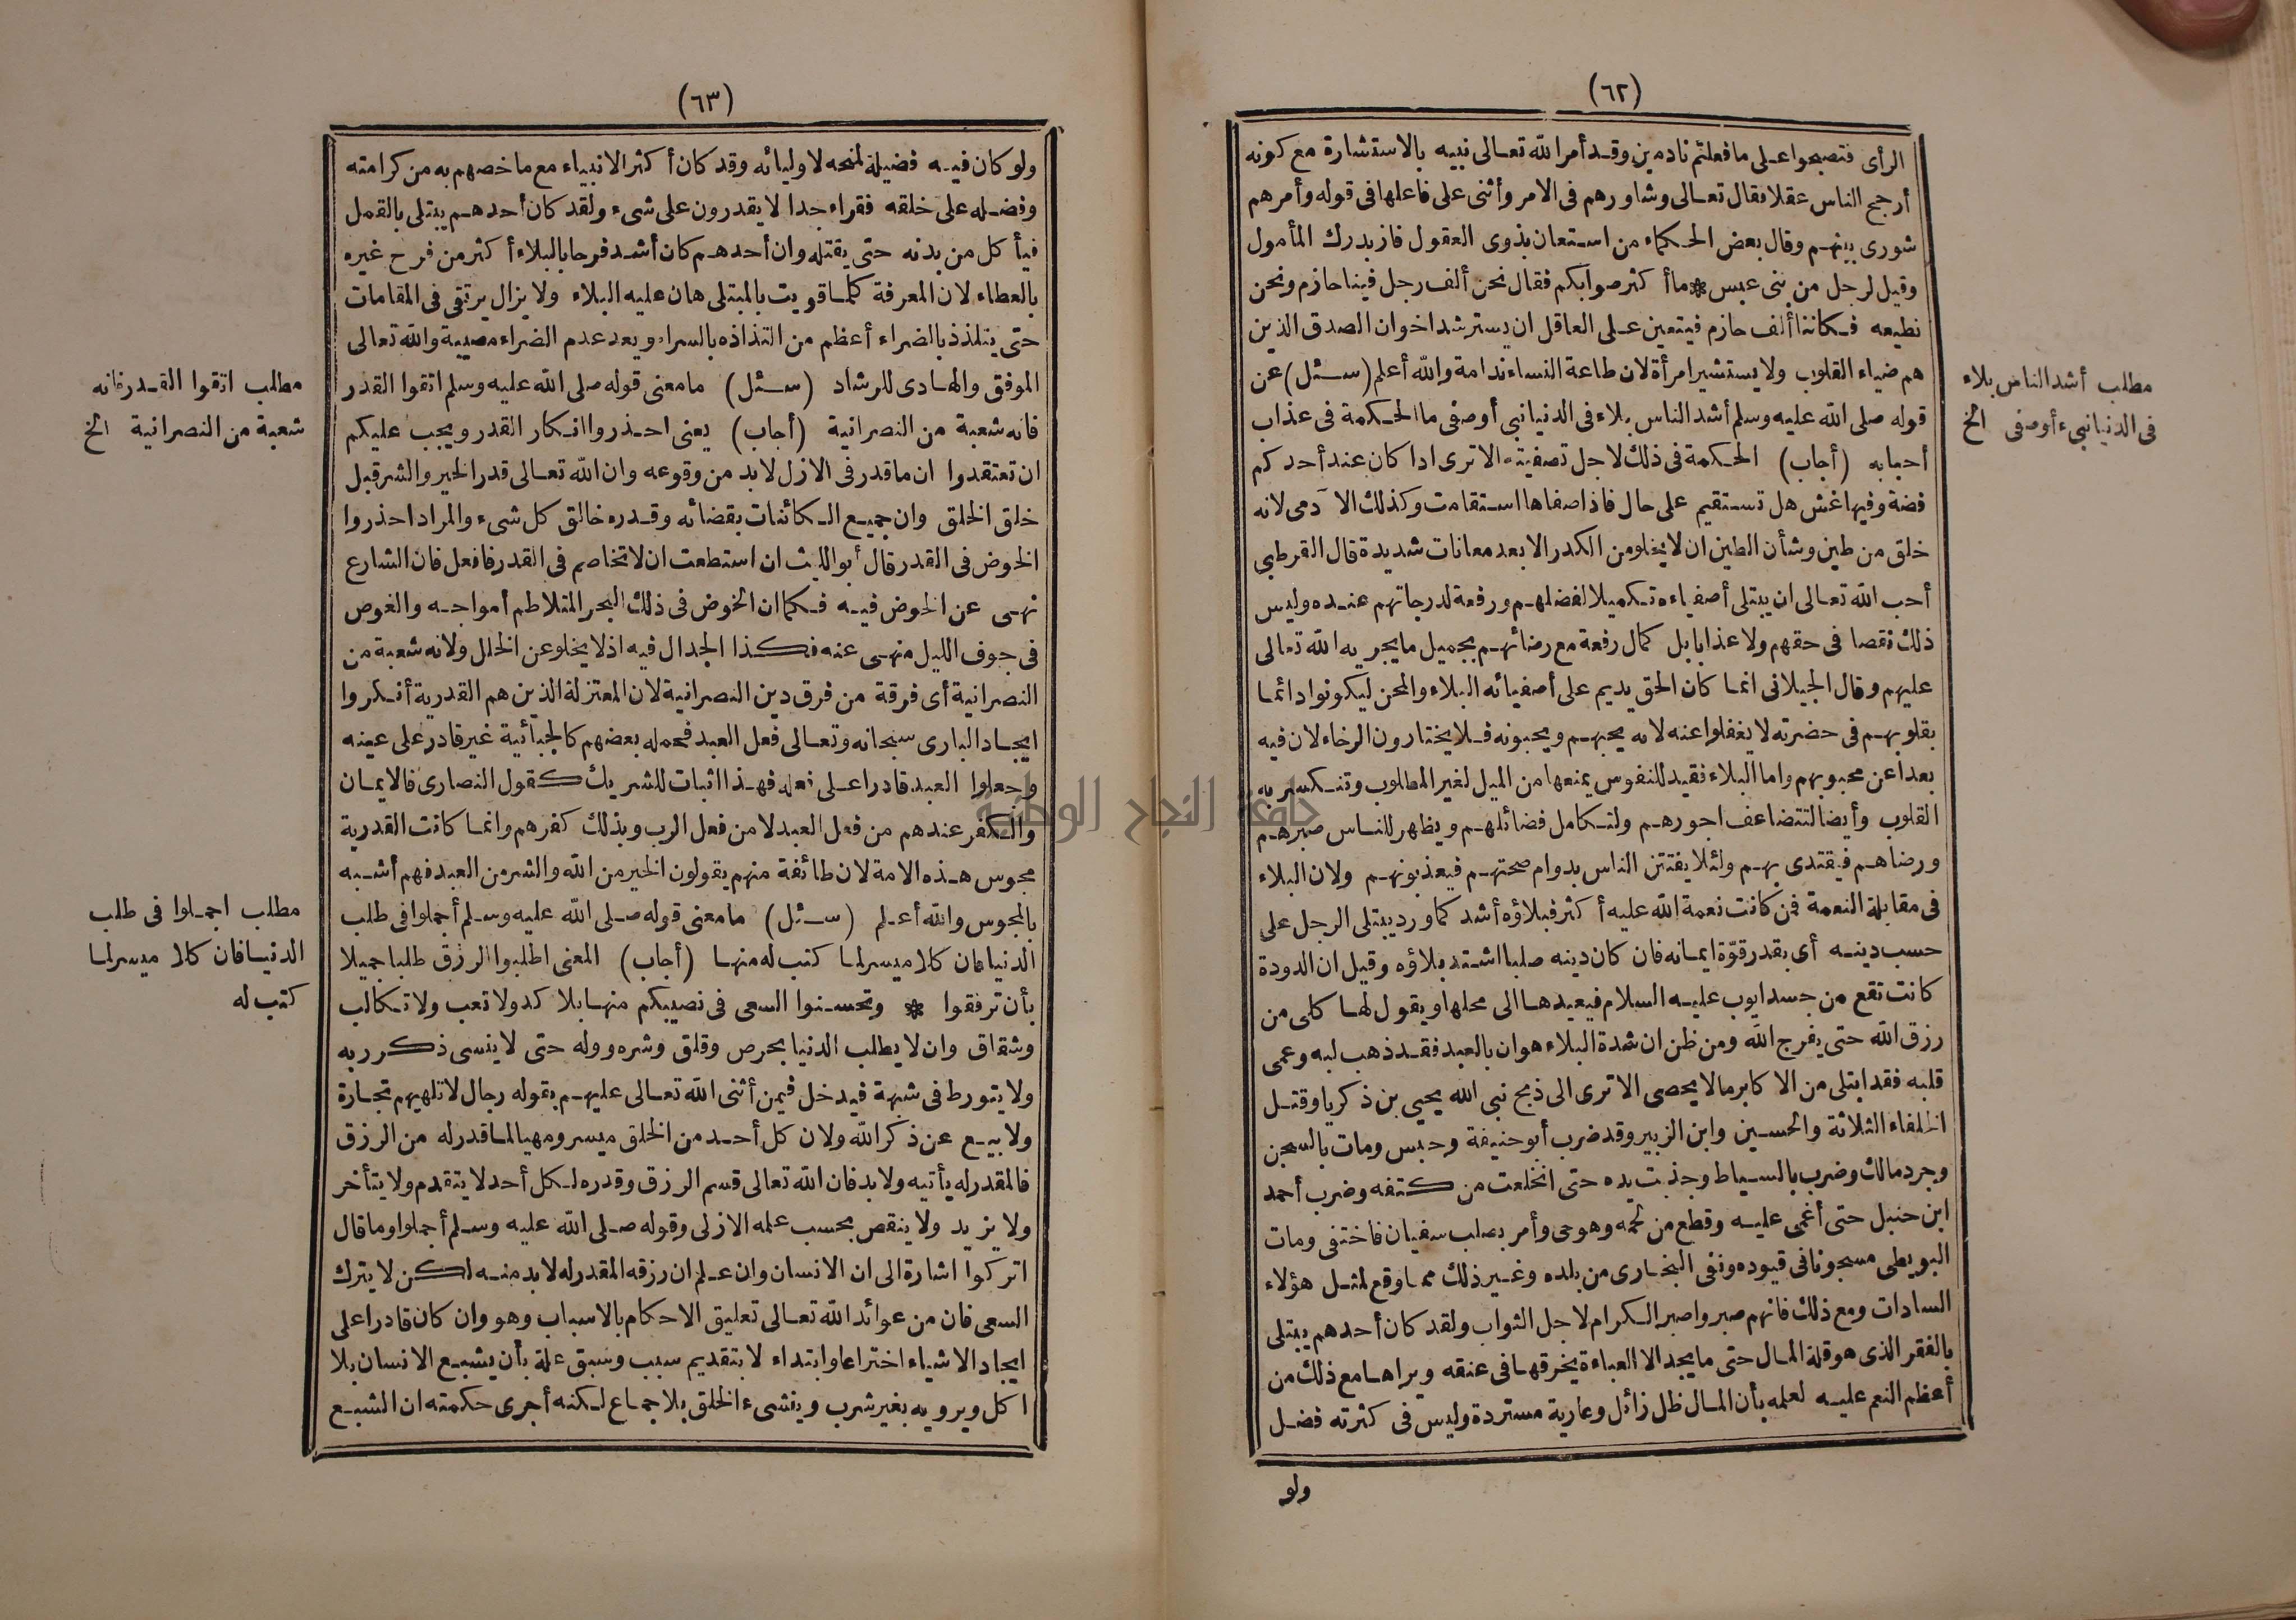 (٦٢)
الرأى فتصبحوا على ما فعلتم نادمين وقد أمر الله تعالى نبيه بالاستشارة مع كونه
أرجح الناس عقلا فقال تعالى وشاورهم فى الامر وأثنى على فاعلها فى قوله وأمرهم
شورى بينهم وقال بعض الحكماء من استعان بذوى العقول فاز بدرك المأمول
وقيل لرجل من بنى عبس * ما أكثر صوابكم فقال نحن ألف رجل فينا حازم ونحن
نطيعه فكاننا ألف حازم فيتعين على العاقل ان يسترشد اخوان الصدق الذين
هم ضياء القلوب ولا يستشير امرأة لان طاعة النساء ندامة والله أعلم (سئل) عن
قوله صلى الله عليه وسلم أشد الناس بلاء فى الدنيا نبى أو صفى ما الحكمة فى عذاب
أحبابه (أجاب) الحكمة فى ذلك لاجل تصفيته الا ترى اذا كان عند أحدكم
فضة وفيها غش هل تستقيم على حال فاذا صفاها استقامت وكذلك الآدمى لانه
خلق من طين وشأن الطين ان لا يخلو من الكدر الا بعد معانات شديدة قال القرطبى
أحب الله تعالى ان يبتلى أصفياءه تكميلا لفضلهم ورفعة لدرجاتهم عنده وليس
ذلك نقصا فى حقهم ولا عذابا بل كمال رفعة مع رضائهم بجميل ما يجريه الله تعالى
عليهم وقال الجيلانى انما كان الحق يديم على أصفيائه البلاء والمحن ليكونوا دائما
بقلوبهم فى حضرته لا يغفلوا عنه لانه يحبهم ويحبونه فلا يختارون الرخاء لان فيه
بعدا عن محبوبهم واما البلاء فقيد للنفوس يمنعها من الميل لغير المطلوب وتنكسر به
القلوب وأيضا لتتضاعف اجورهم ولتكامل فضائلهم ويظهر للناس صبرهم
ورضاهم فيقتدى بهم ولئلا يفتتن الناس بدوام صحتهم فيعذبونهم ولان البلاء
فى مقابلة النعمة فمن كانت نعمة الله عليه أكثر فبلاؤه أشد كما ورد يبتلى الرجل على
حسب دينه أى بقدر قوّة ايمانه فان كان دينه صلبا اشتد بلاؤه وقيل ان الدودة
كانت تقع من جسد ايوب عليه السلام فيعيدها الى محلها ويقول لها كلى من
رزق الله حتى يفرج الله ومن ظن ان شدة البلاء هوان بالعبد فقد ذهب لبه وعمى
قلبه فقد ابتلى من الاكابر مالا يحصى الا ترى الى ذبح نبى الله يحيى بن زكريا وقتل
الخلفاء الثلاثة والحسين وابن الزبير وقد ضرب أبو حنيفة وحبس ومات بالسجن
وجرد مالك وضرب بالسياط وجذبت يده حتى انخلعت من كتفه وضرب أحمد
ابن حنبل حتى أغمى عليه وقطع من لحمه وهو حى وأمر بصلب سفيان فاختفى ومات
البويطى مسجونا فى قيوده ونفى البخارى من بلده وغير ذلك مما وقع لمثل هؤلاء
السادات ومع ذلك فانهم صبروا صبر الكرام لاجل الثواب ولقد كان أحدهم يبتلى
بالفقر الذى هو قلة المال حتى ما يجد الا العباءة يخرقها فى عنقه ويراها مع ذلك من
أعظم النعم عليه لعلمه بأن المال ظل زائل وعارية مستردة وليس فى كثرته فضل
ولو
مطلب أشد الناس بلاء
فى الدنيا نبىء أو صفى الخ
(٦٣)
ولو كان فيه فضيلة لمنحه لاوليائه وقد كان أكثر الانبياء مع ما خصهم به من كرامته
وفضله على خلقه فقراء جدا لا يقدرون على شىء ولقد كان أحدهم يبتلى بالقمل
فيأكل من بدنه حتى يقتله وان أحدهم كان أشد فرحا بالبلاء أكثر من فرح غيره
بالعطاء لان المعرفة كلما قويت بالمبتلى هان عليه البلاء ولا يزال يرتقى فى المقامات
حتى يتلذذ بالضراء أعظم من التذاذه بالسراء ويعد عدم الضراء مصيبة والله تعالى
الموفق والهادى للرشاد (سئل) ما معنى قوله صلى الله عليه وسلم اتقوا القدر
فانه شعبة من النصرانية (أجاب) يعنى احذروا انكار القدر ويجب عليكم
ان تعتقدوا ان ما قدر فى الازل لا بد من وقوعه وان الله تعالى قدر الخير والشر قبل
خلق الخلق وان جميع الكائنات بقضائه وقدره خالق كل شىء والمراد احذروا
الخوض فى القدر قال أبو الليث ان استطعت ان لا تخاصم فى القدر فافعل فان الشارع
نهى عن الخوض فيه فكما ان الخوض فى ذلك البحر المتلاطم أمواجه والغوص
فى جوف الليل منهى عنه فكذا الجدال فيه اذ لا يخلو عن الخلل ولانه شعبة من
النصرانية أى فرقة من فرق دين النصرانية لان المعتزلة الذين هم القدرية أنكروا
ايجاد البارى سبحانه وتعالى فعل العبد فجعله بعضهم كالجبائية غير قادر على عينه
وجعلوا العبد قادرا على فعله فهذا اثبات للشريك كقول النصارى فالايمان
والكفر عندهم من فعل العبد لا من فعل الرب وبذلك كفرهم وانما كانت القدرية
مجوس هذه الامة لان طائفة منهم يقولون الخير من الله والشر من العبد فهم أشبه
بالمجوس والله أعلم (سئل) ما معنى قوله صلى الله عليه وسلم أجملوا فى طلب
الدنيا فان كلا ميسر لما كتب له منها (أجاب) المعنى اطلبوا الرزق طلبا جميلا
بأن ترفقوا * وتحسنوا السعى فى نصيبكم منها بلا كد ولا تعب ولا تكالب
وشقاق وان لا يطلب الدنيا بحرص وقلق وشره ووله حتى لا ينسى ذكر ربه
ولا يتورط فى شبهة فيدخل فيمن أثنى الله تعالى عليهم بقوله رجال لا تلهيهم تجارة
ولا بيع عن ذكر الله ولان كل أحد من الخلق ميسر ومهيا لما قدر له من الرزق
فالمقدر له يأتيه ولا بد فان الله تعالى قسم الرزق وقدره لكل أحد لا يتقدم ولا يتأخر
ولا يزيد ولا ينقص بحسب علمه الازلى وقوله صلى الله عليه وسلم أجملوا وما قال
اتركوا اشارة الى ان الانسان وان علم ان رزقه المقدر له لا بد منه لكن لا يترك
السعى فان من عوائد الله تعالى تعليق الاحكام بالاسباب وهو وان كان قادرا على
ايجاد الاشياء اختراعا وابتداء لا بتقديم سبب وسبق علة بأن يشبع الانسان بلا
اكل ويرويه بغير شرب وينشىء الخلق بلا جماع لكنه أجرى حكمته ان الشبع
مطلب اتقوا القدر فانه
شعبة من النصرانية الخ
مطلب اجملوا فى طلب
الدنيا فان كلا ميسر لما
كتب له
جامعة النجاح الوطنية